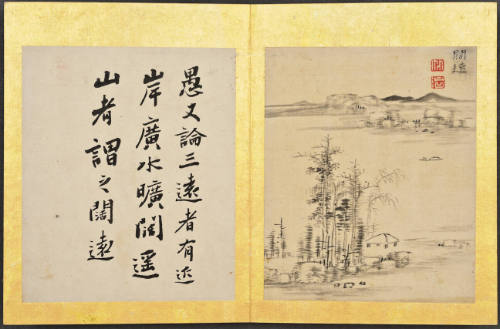 闊遠
愚又論三遠者有近
岸廣水曠闊遥
山者謂之闊遠